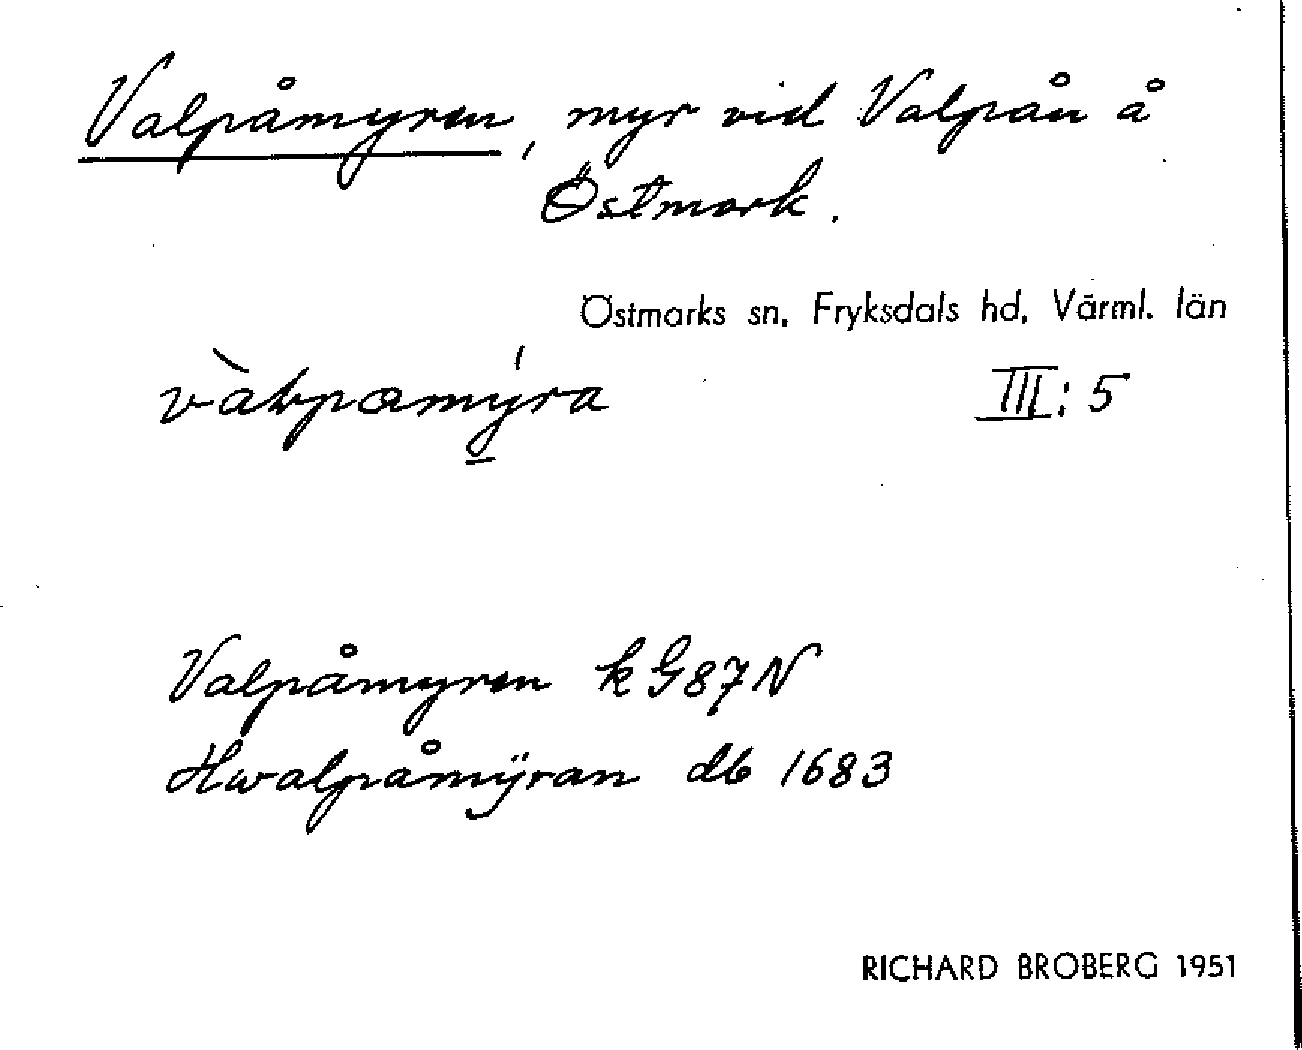 Valpåmyren, myr vid Valpån å
Östmark.
Östmarks sn, Fryksdals hd, Värml. län
III:5
Valpåmyren k G87N
Hwalpåmÿran db 1683
RICHARD BROBERG 1951